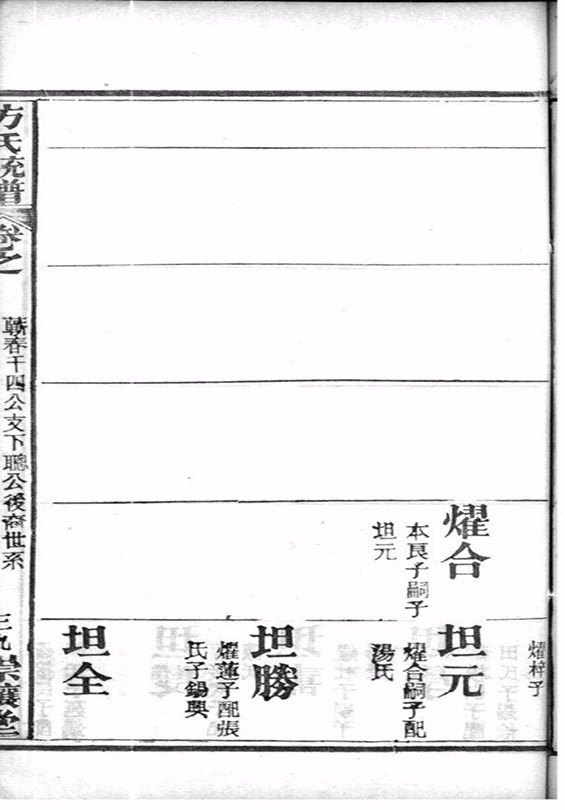 燿合
本良子嗣子
坦元
燿梓子
坦元
燿合嗣子配
湯氏
坦勝
燿蓮子配張
氏子錫興
坦全
方氏統譜
卷之
蘄春千四公支下聰公後裔世系
三九
崇讓堂